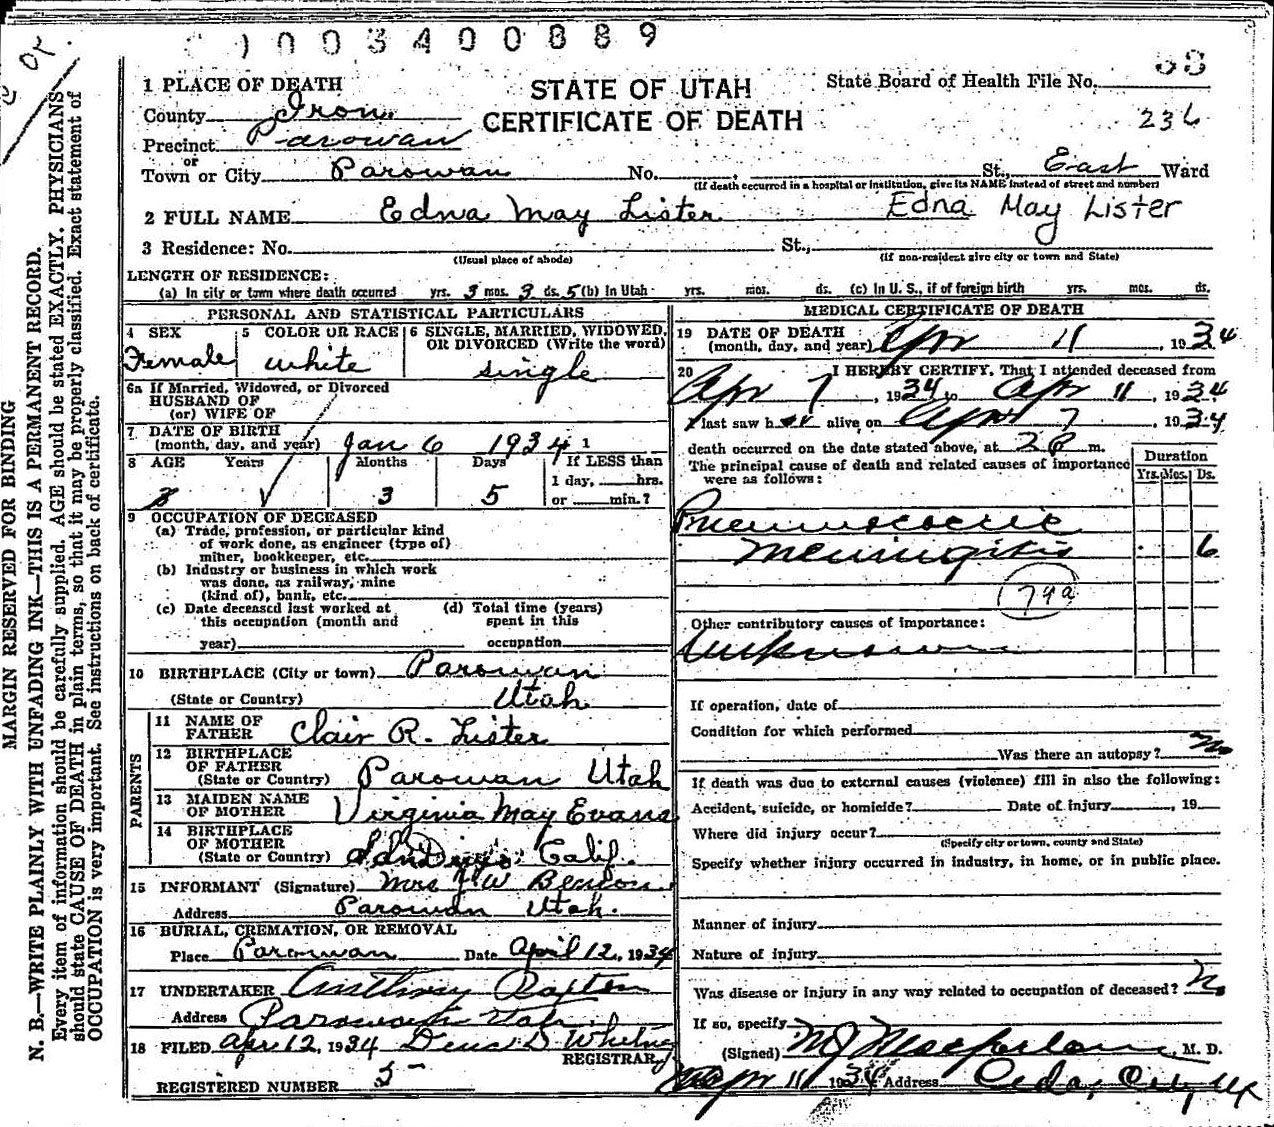 1003400889
MARGIN RESERVED FOR BINDING
N. B.—WRITE PLAINLY WITH UNFADING INK—THIS IS A PERMANENT RECORD.
Every item of information should be carefully supplied. AGE should be stated EXACTLY. PHYSICIANS
should state CAUSE OF DEATH in plain terms, so that it may be properly classified. Exact statement of
OCCUPATION is very important. See instructions on back of certificate.
STATE OF UTAH
CERTIFICATE OF DEATH
State Board of Health File No. 53
236
1 PLACE OF DEATH
County Iron
Precinct Parowan
or
Town or City Parowan No. St., East Ward
(If death occurred in a hospital or institution, give its NAME instead of street and number)
2 FULL NAME Edna May Lister Edna May Lister
3 Residence: No. St.,
(Usual place of abode) (If non-resident give city or town and State)
LENGTH OF RESIDENCE:
(a) In city or town where death occurred yrs. 3 mos. 3 ds. 5 (b) In Utah yrs. mos. ds. (c) In U. S., if of foreign birth yrs. mos. ds.
PERSONAL AND STATISTICAL PARTICULARS
4 SEX Female
5 COLOR OR RACE white
6 SINGLE, MARRIED, WIDOWED,
OR DIVORCED (Write the word)
single
6a If Married, Widowed, or Divorced
HUSBAND OF
(or) WIFE OF
7 DATE OF BIRTH
(month, day, and year) Jan 6 1934 1
8 AGE Years Months Days If LESS than
1 day, hrs.
3 5 or min.?
9 OCCUPATION OF DECEASED
(a) Trade, profession, or particular kind
of work done, as engineer (type of)
miner, bookkeeper, etc.
(b) Industry or business in which work
was done, as railway, mine
(kind of), bank, etc.
(c) Date deceased last worked at
this occupation (month and
year)
(d) Total time (years)
spent in this
occupation
10 BIRTHPLACE (City or town) Parowan
(State or Country) Utah
PARENTS
11 NAME OF
FATHER Clair R. Lister
12 BIRTHPLACE
OF FATHER
(State or Country) Parowan Utah
13 MAIDEN NAME
OF MOTHER Virginia May Evans
14 BIRTHPLACE
OF MOTHER
(State or Country) San Diego Calif.
15 INFORMANT (Signature) Mrs J. W Benson
Address Parowan Utah.
16 BURIAL, CREMATION, OR REMOVAL
Place Parowan Date April 12, 1934
17 UNDERTAKER Anthony
Address Parowan Utah
18 FILED Apr 12, 1934 D. Whitney
REGISTRAR
REGISTERED NUMBER 5
MEDICAL CERTIFICATE OF DEATH
19 DATE OF DEATH
(month, day, and year) Apr 11, 1934
20 I HEREBY CERTIFY, That I attended deceased from
Apr 7, 1934 to Apr 11, 1934
I last saw her alive on Apr 7, 1934
death occurred on the date stated above, at 2 P m.
The principal cause of death and related causes of importance
were as follows:
Duration
Yrs. Mos. Ds.
Pneumococcic
Meningitis 6
79a
Other contributory causes of importance:
Unknown
If operation, date of
Condition for which performed
Was there an autopsy? No
If death was due to external causes (violence) fill in also the following:
Accident, suicide, or homicide? Date of injury, 19
Where did injury occur?
(Specify city or town, county and State)
Specify whether injury occurred in industry, in home, or in public place.
Manner of injury
Nature of injury
Was disease or injury in any way related to occupation of deceased? No
If so, specify
(Signed) M J Macfarlane, M. D.
Apr 11 1934 Address Cedar City, Ut